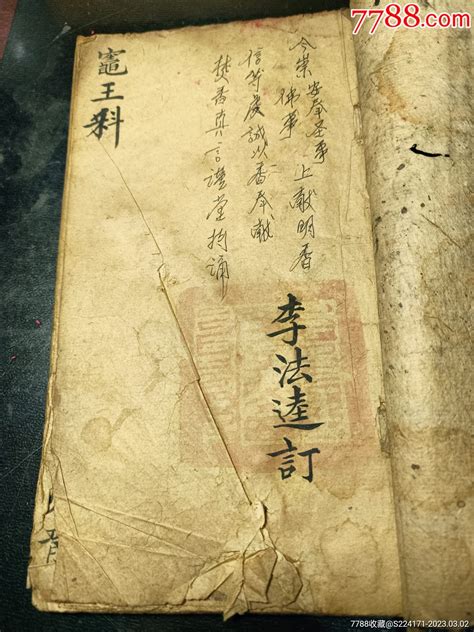 7788.com
今崇 安奉圣事 上献明香
佛事
信等虔誠以香奉献
焚香真言謹堂持誦
李法逵訂
竈王科
7788收藏@S224171-2023.03.02